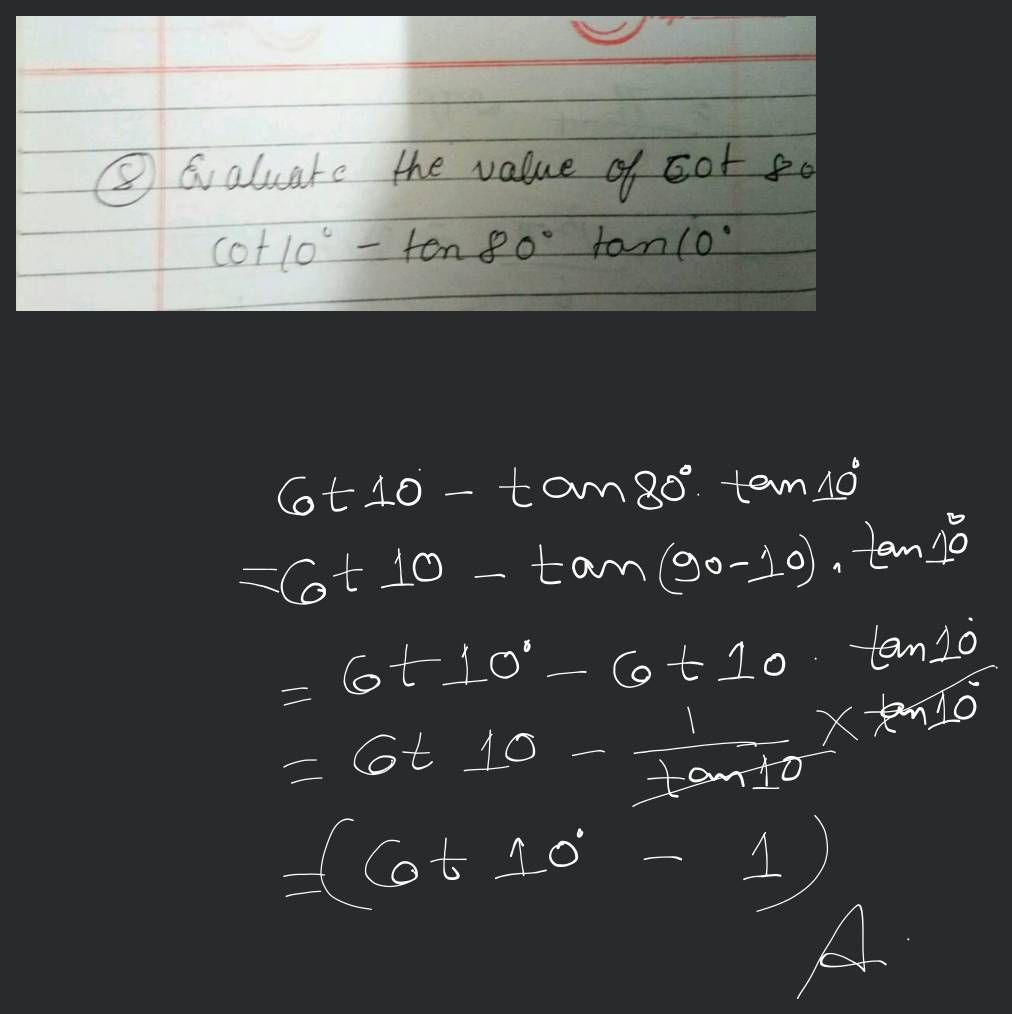 ⑧ Evaluate the value of cot 80
cot10° - tan80° tan10°
Cot 10 - tan80°. tan10°
=Cot 10 - tan(90-10). tan10°
= Cot10° - Cot 10 . tan10°
= Cot 10 - 1/tan10 × tan10°
=(Cot 10° - 1)
A.